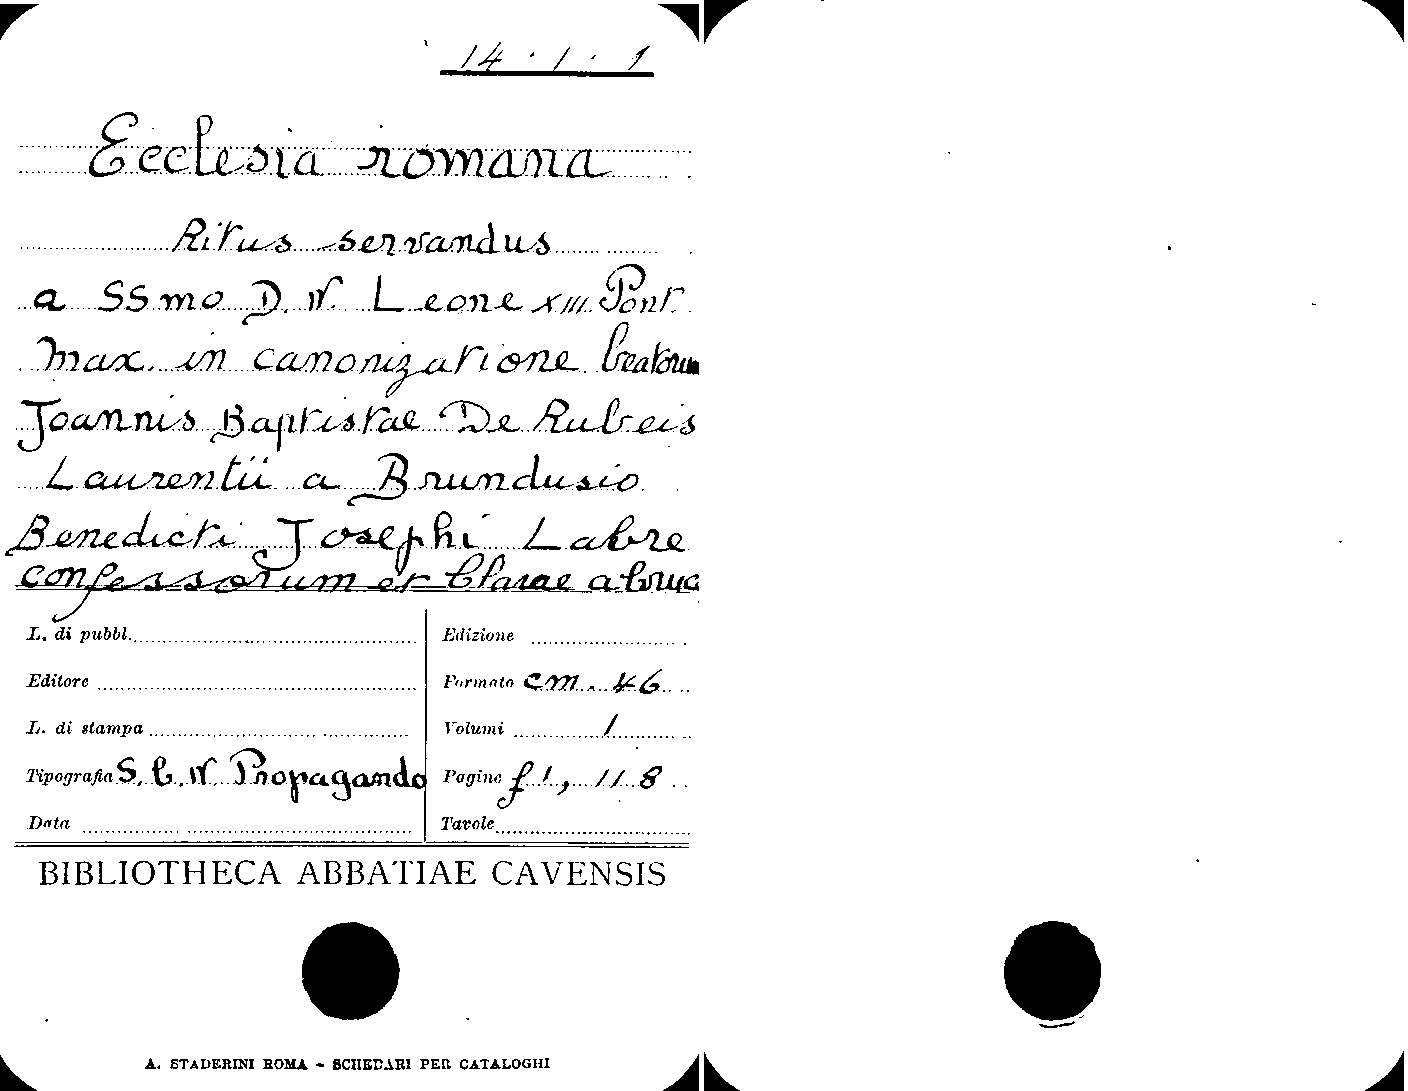 14 · 1 · 1
Ecclesia romana
Ritus servandus
a SSmo D. N. Leone XIII Pont.
Max. in canonizatione beatorum
Joannis Baptistae De Rubeis
Laurentii a Brundusio
Benedicti Josephi Labre
confessorum et Clarae a Cruce
L. di pubbl.
Editore
L. di stampa
Tipografia S. C. N. Propagando
Data
Edizione
Formato cm. 46
Volumi 1
Pagine f 1, 118
Tavole
BIBLIOTHECA ABBATIAE CAVENSIS
A. STADERINI ROMA - SCHEDARI PER CATALOGHI